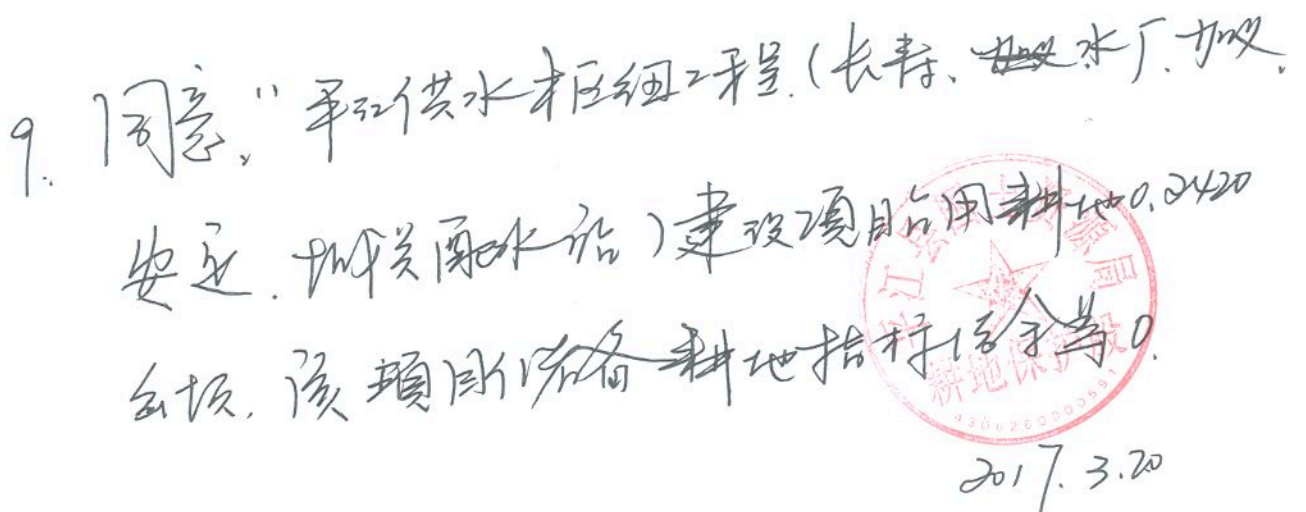 9. 同意"平江供水枢纽工程(长寿、水厂、加义、
安定、城关配水站)建设项目占用耕地0.2420
公顷,该项目所储备耕地指标结余为0.
平江县国土资源局
耕地保护股
4306260000591
2017.3.20